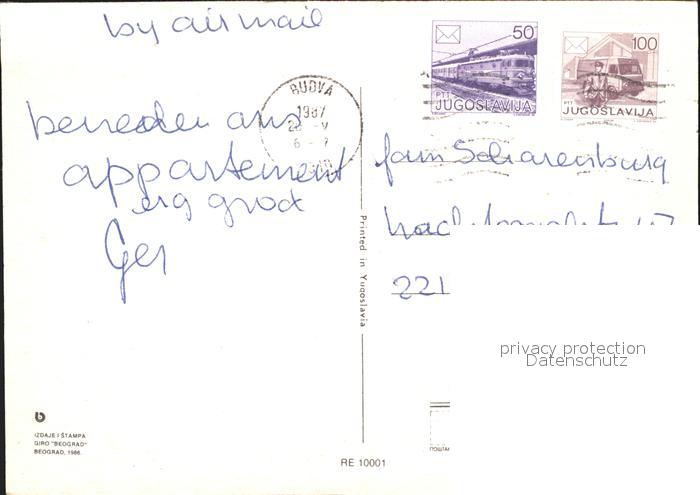 by air mail
50
100
PTT
JUGOSLAVIJA
PTT
JUGOSLAVIJA
BUDVA
1987
beneden ons
appartement
erg groot
Ger
fam Scharenburg
221
Printed in Yugoslavia
privacy protection
Datenschutz
IZDAJE I ŠTAMPA
GIRO "BEOGRAD"
BEOGRAD, 1986.
RE 10001